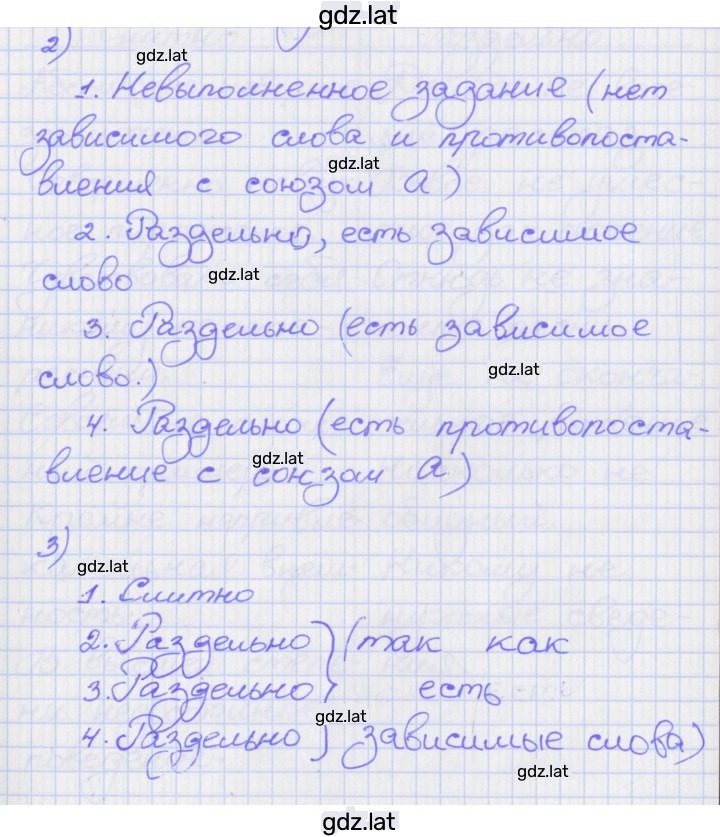 gdz.lat
2)
gdz.lat
1. Невыполненное задание (нет
зависимого слова и противопоста-
gdz.lat
вления с союзом а)
2. Раздельно, есть зависимое
gdz.lat
слово
3. Раздельно (есть зависимое
gdz.lat
слово.)
4. Раздельно (есть противопоста-
gdz.lat
вление с союзом а)
3)
gdz.lat
1. Слитно
2. Раздельно } (так как
3. Раздельно } есть
gdz.lat
4. Раздельно } зависимые слова)
gdz.lat
gdz.lat